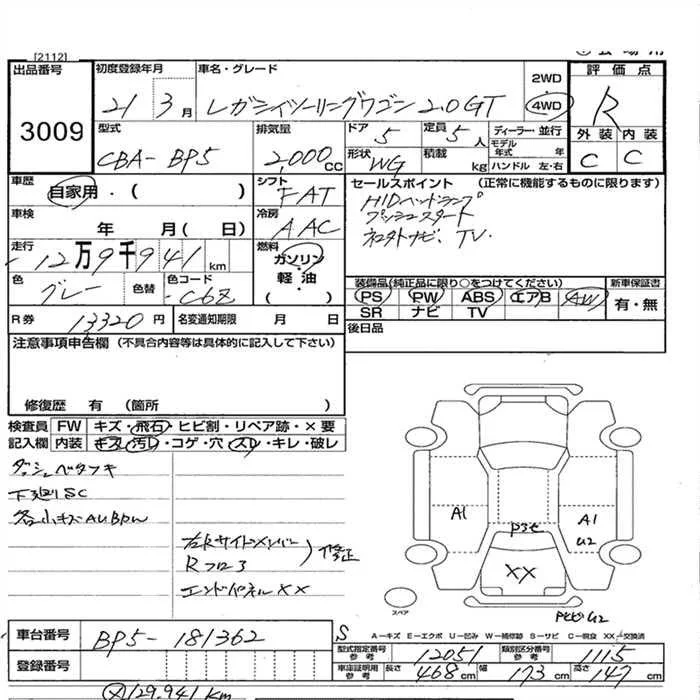 [2112]
出品番号
3009
初度登録年月
21 3月
車名・グレード
レガシィツーリングワゴン 2.0GT
2WD
4WD
評価点
R
外装 内装
C C
型式
CBA-BP5
排気量
2,000cc
ドア
5
定員
5人
形状
WG
積載
kg
ディーラー・並行
モデル年式 年
ハンドル 左・右
車歴
自家用・( )
シフト
FAT
セールスポイント (正常に機能するものに限ります)
HIDヘッドランプ
プッシュスタート
TV.
車検
年 月( 日)
冷房
AAC
走行
12万9千941km
燃料
ガソリン・軽油
( )
色
グレー
色替
色コード
C6Z
装備品(純正品に限り○をつけてください)
PS PW ABS エアB AW
SR ナビ TV
新車保証書
有・無
R券
13320円
名変通知期限 月 日
後日品
注意事項申告欄 (不具合内容等は具体的に記入して下さい)
修復歴 有 (箇所 )
検査員記入欄
FW キズ・飛石・ヒビ割・リペア跡・×要
内装 キズ・汚レ・コゲ・穴・スレ・キレ・破レ
ダッシュベタツキ
下廻りSC
各小キズAUBPW
右Rサイドメンバー
Rフロア
エンドパネルXX
修正
A1
A1
U2
XX
スペア
車台番号
BP5-181362
登録番号
S
A-キズ E-エクボ U-凹み W-補修跡 S-サビ C-腐食 XX-交換済
型式指定番号 参考
12051
類別区分番号 参考
1115
車庫証明用 参考
長さ 468cm 幅 173cm 高さ 147cm
129.941km